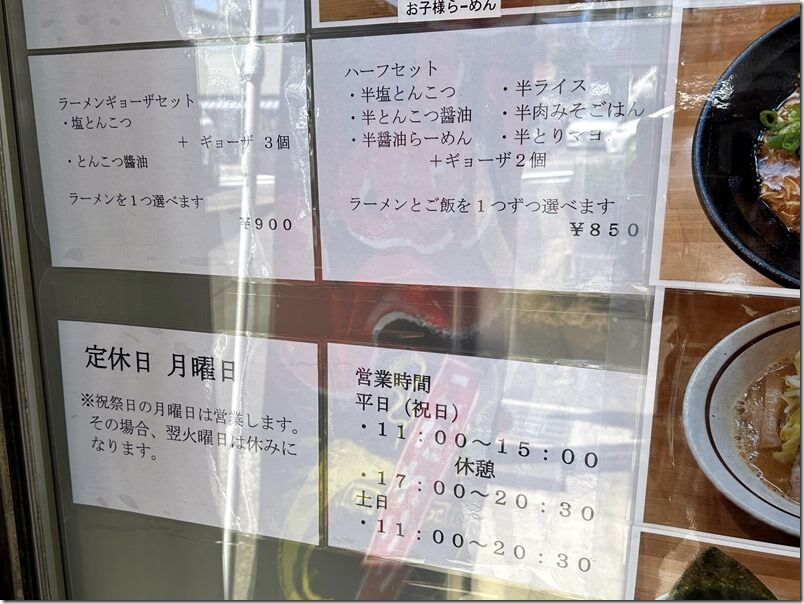 お子様らーめん
ラーメンギョーザセット
・塩とんこつ
＋ ギョーザ 3個
・とんこつ醤油
ラーメンを１つ選べます
￥９００
ハーフセット
・半塩とんこつ ・半ライス
・半とんこつ醤油 ・半肉みそごはん
・半醤油らーめん ・半とりマヨ
＋ギョーザ２個
ラーメンとご飯を１つずつ選べます
￥８５０
定休日 月曜日
※祝祭日の月曜日は営業します。
その場合、翌火曜日は休みに
なります。
営業時間
平日（祝日）
・１１：００～１５：００
休憩
・１７：００～２０：３０
土日
・１１：００～２０：３０